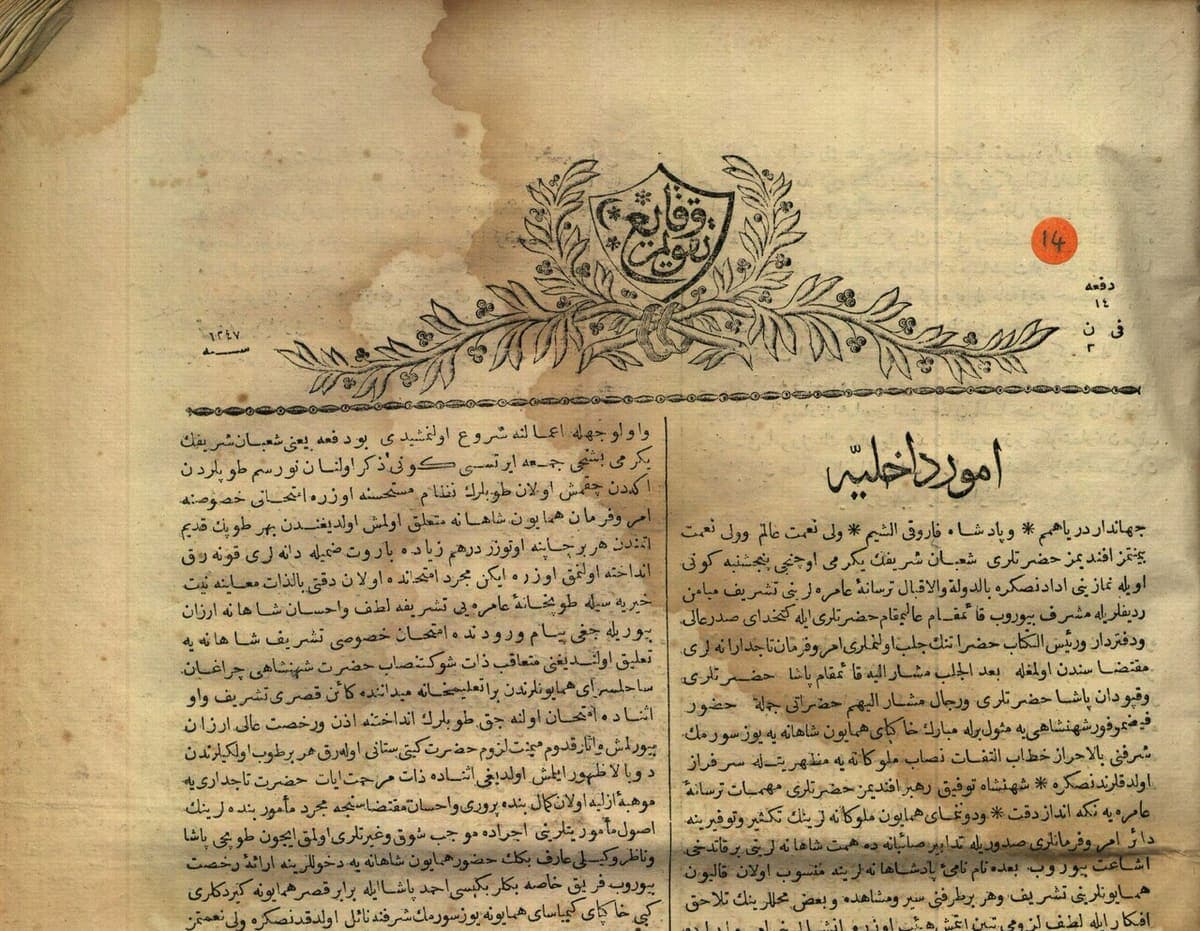 تقويم وقايع
14
دفعه
١٤
فى ن
٣
سنه ١٢٤٧
امور داخليّه
جهاندار درياهمم * و پادشاه فاروقى الشيم * ولى نعمت عالم وولى نعمت
بيمنتمز افنديمز حضرتلرى شعبان شريفك يكرمى اوچنجى پنجشنبه كونى
اويله نمازينى ادادنصكره بالدولة والاقبال ترسانۀ عامره لرينى تشريف ميامن
رديفلريله مشرف بيوروب قائمقام عاليمقام حضرتلرى ايله كتخداى صدرعالى
ودفتردار ورئيس الكتاب حضراتنك جلب اولنملرى امر وفرمان تاجدارانه لرى
مقتضاسندن اولمغله بعد الجلب مشار اليه قائمقام پاشا حضرتلرى
وقپودان پاشا حضرتلرى ورجال مشار اليهم حضراتى جملة حضور
فيضموفور شهنشاهى يه مثول برله مبارك خاكپاى همايون شاهانه يه يوز سورمك
شرفنى بالاحراز خطاب التفات نصاب ملوكانه يه مظهريتله سرفراز
اولدقلرندنصكره * شهنشاه توفيق رهبر افنديمز حضرتلرى مهمات ترسانۀ
عامره يه نكه انداز دقت * ودوننماى همايون ملوكانه لرينك تكثير وتوفيرينه
دائر امر وفرمانلرى صدوريله تدابير صائبانه ده همت شاهانه لرينى برقاندخى
اشاعت بيوروب بعده نام نامئ پادشاهانه لرينه منسوب اولان قاليون
همايونلرينى تشريف وهر برطرفنى سير ومشاهده وبعض محللرينك تلاحق
افكار ايله لطف
واولوجهله اعمالنه شروع اولنمشيدى بودفعه يعنى شعبان شريفك
يكرمى بشنجى جمعه ايرتسى كونى ذكر اولنان نورسم طوپلردن
اكدن چقمش اولان طوپلرك نظام مستحسنه اوزره امتحانى خصوصنه
امر وفرمان همايون شاهانه متعلق اولمش اولديغندن بهر طوپك قديم
اتمندن هر برچاپنه اوتوزر درهم زياده باروت ضميله دانه لرى قونه رق
انداخته اولنمق اوزره ايكن مجرد امتحانده اولان دقتى بالذات معاينه نيت
خيريه سيله طوپخانۀ عامره يى تشريفه لطف واحسان شاهانه ارزان
بيوريله جغى پيام ورودنده امتحان خصوصى تشريف شاهانه يه
تعليق اولنديغنى متعاقب ذات شوكتنصاب حضرت شهنشاهى چراغان
ساحلسراى همايونلرندن برا تعليمخانه ميداننده كائن قصرى تشريف واو
اثناده امتحان اولنه جق طوپلرك انداخته اذن ورخصت عالى ارزان
بيورلمش واثار قدوم ميمنت لزوم حضرت كيتى ستانى اوله رق هر برطوب اولكيلرندن
دوبالا ظهور ايلمش اولديغى اثناده ذات مرحمت ايات حضرت تاجدارى يه
موهبۀ ازليه اولان كمال بنده پرورى واحسان مقتضاسنجه مجرد مأمور بنده لرينك
اصول مأموريتلرينى اجراده موجب شوق وغيرتلرى اولمق ايچون طوپجى پاشا
وناظر وكيلى عارف بكك حضور همايون شاهانه يه دخوللرينه ارائۀ رخصت
بيوروب فريق خاصه بكلربكيسى احمد پاشا ايله برابر قصر همايونه كيردكلرى
كبى خاكپاى كيمياساى همايونه يوز سورمك شرفنه نائل اولدقدنصكره ولى نعمتمز